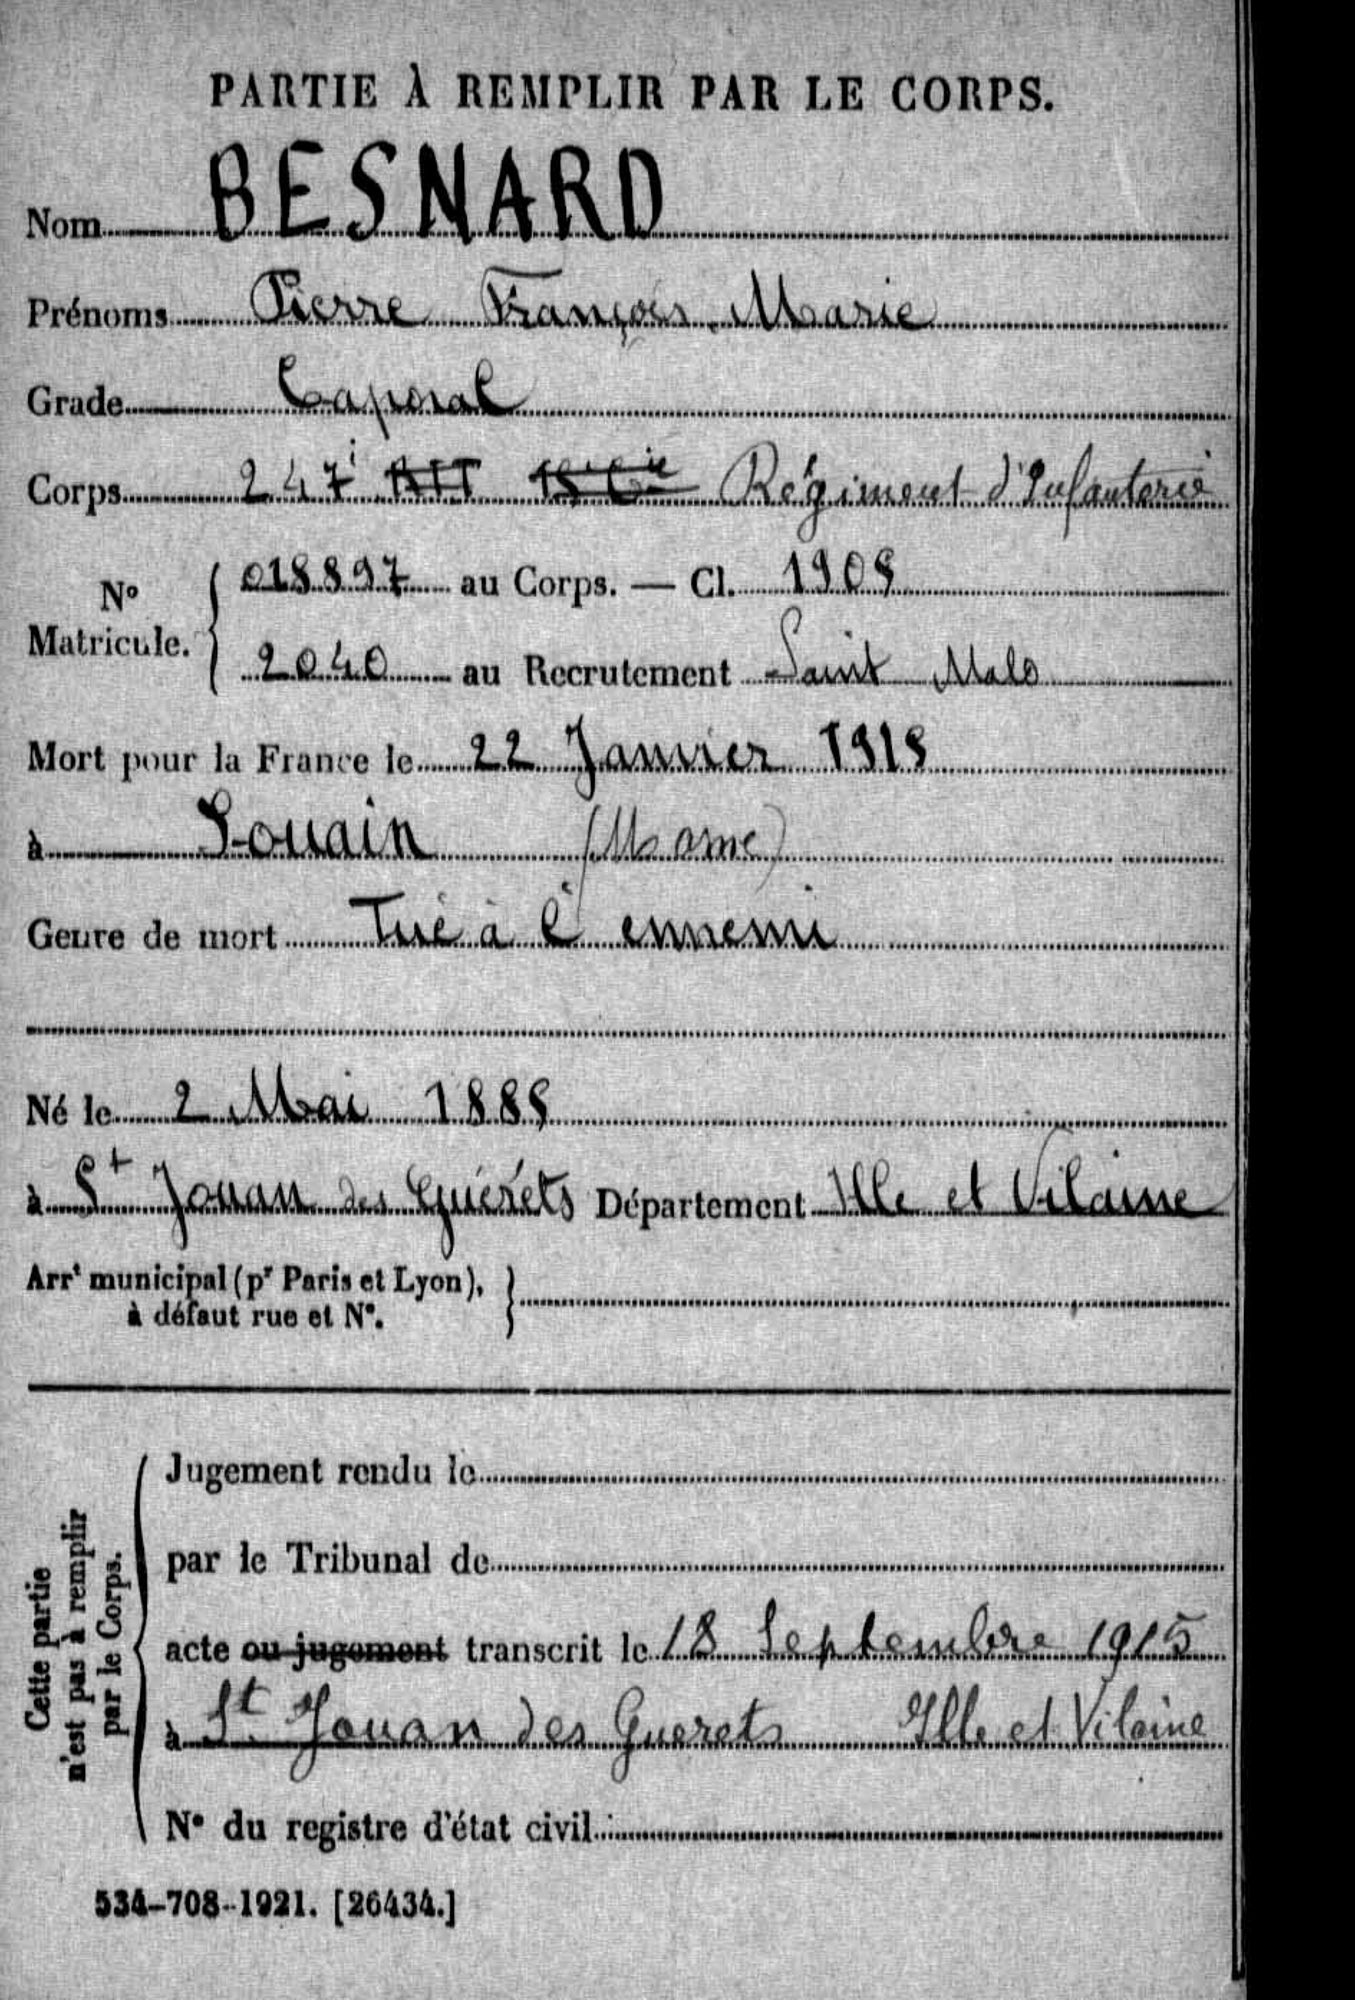 PARTIE À REMPLIR PAR LE CORPS.
Nom BESNARD
Prénoms Pierre François Marie
Grade Caporal
Corps 247e RIT Cie Régiment d'Infanterie
N° Matricule. { 018897 au Corps. — Cl. 1905
2040 au Recrutement Saint Malo
Mort pour la France le 22 Janvier 1915
à Souain (Marne)
Genre de mort Tué à l'ennemi
Né le 2 Mai 1885
à St Jouan des Guérêts Département Ille et Vilaine
Arrt municipal (pr Paris et Lyon), }
à défaut rue et N°.
Cette partie
n'est pas à remplir
par le Corps.
Jugement rendu le
par le Tribunal de
acte ou jugement transcrit le 18 Septembre 1915
à St. Jouan des Guerets Ille et Vilaine
N° du registre d'état civil
534-708-1921. [26434.]